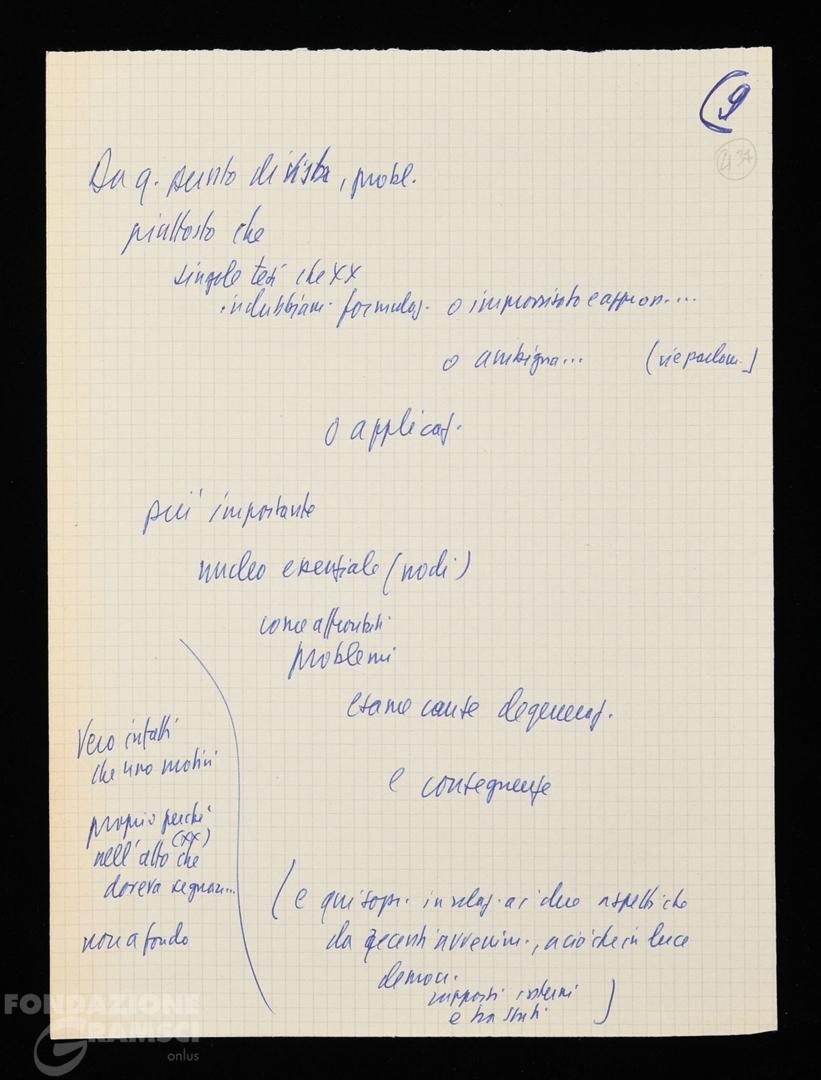 (9
437
Da q. punto di vista, probl.
piuttosto che
singole tesi che XX
indubbiam. formulaz. o improvvisato e appros....
o ambigua... (ne parlam.)
o applicaz.
più importante
nucleo essenziale (nodi)
come affrontati
problemi
esame cause degeneraz.
e conseguenze
Vero infatti
che uno motivi
proprio perché
(XX)
nell'atto che
doveva segnare...
non a fondo
(e qui sopr. in relaz. ai due aspetti che
da recenti avvenim., a ciò che in luce
democr.
rapporti interni
e tra Stati )
FONDAZIONE
GRAMSCI
onlus